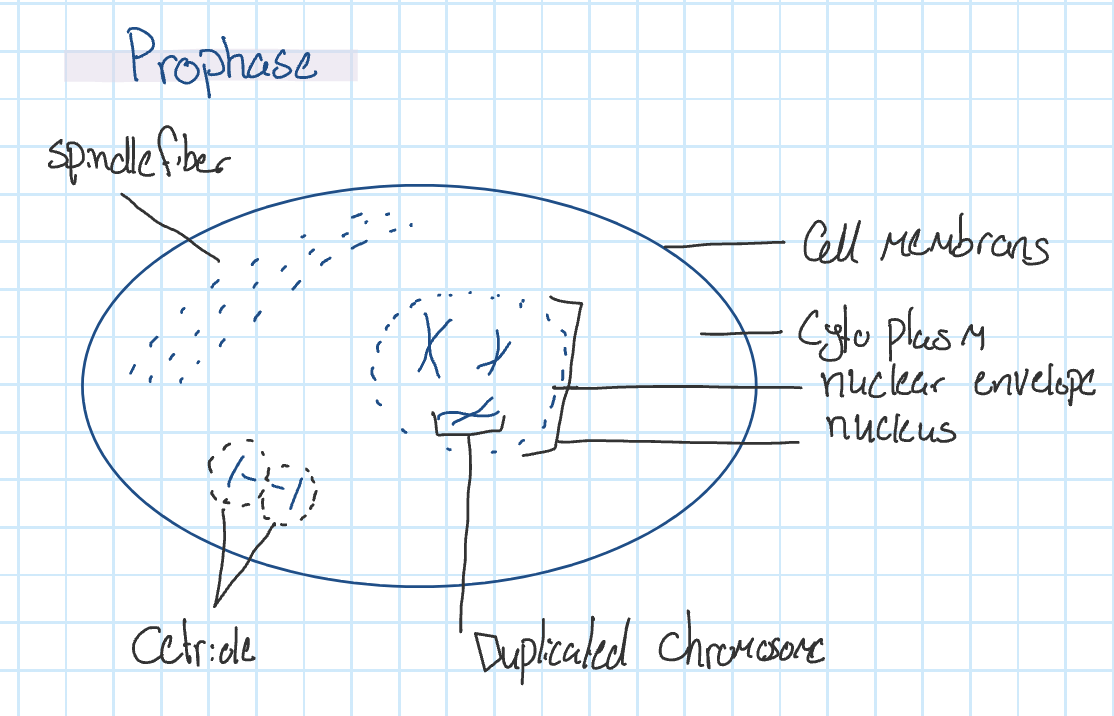 Prophase
spindle fiber
Cell membrans
Cyto plasm
nuclear envelope
nuckus
Cctriole
Duplicated chromosome